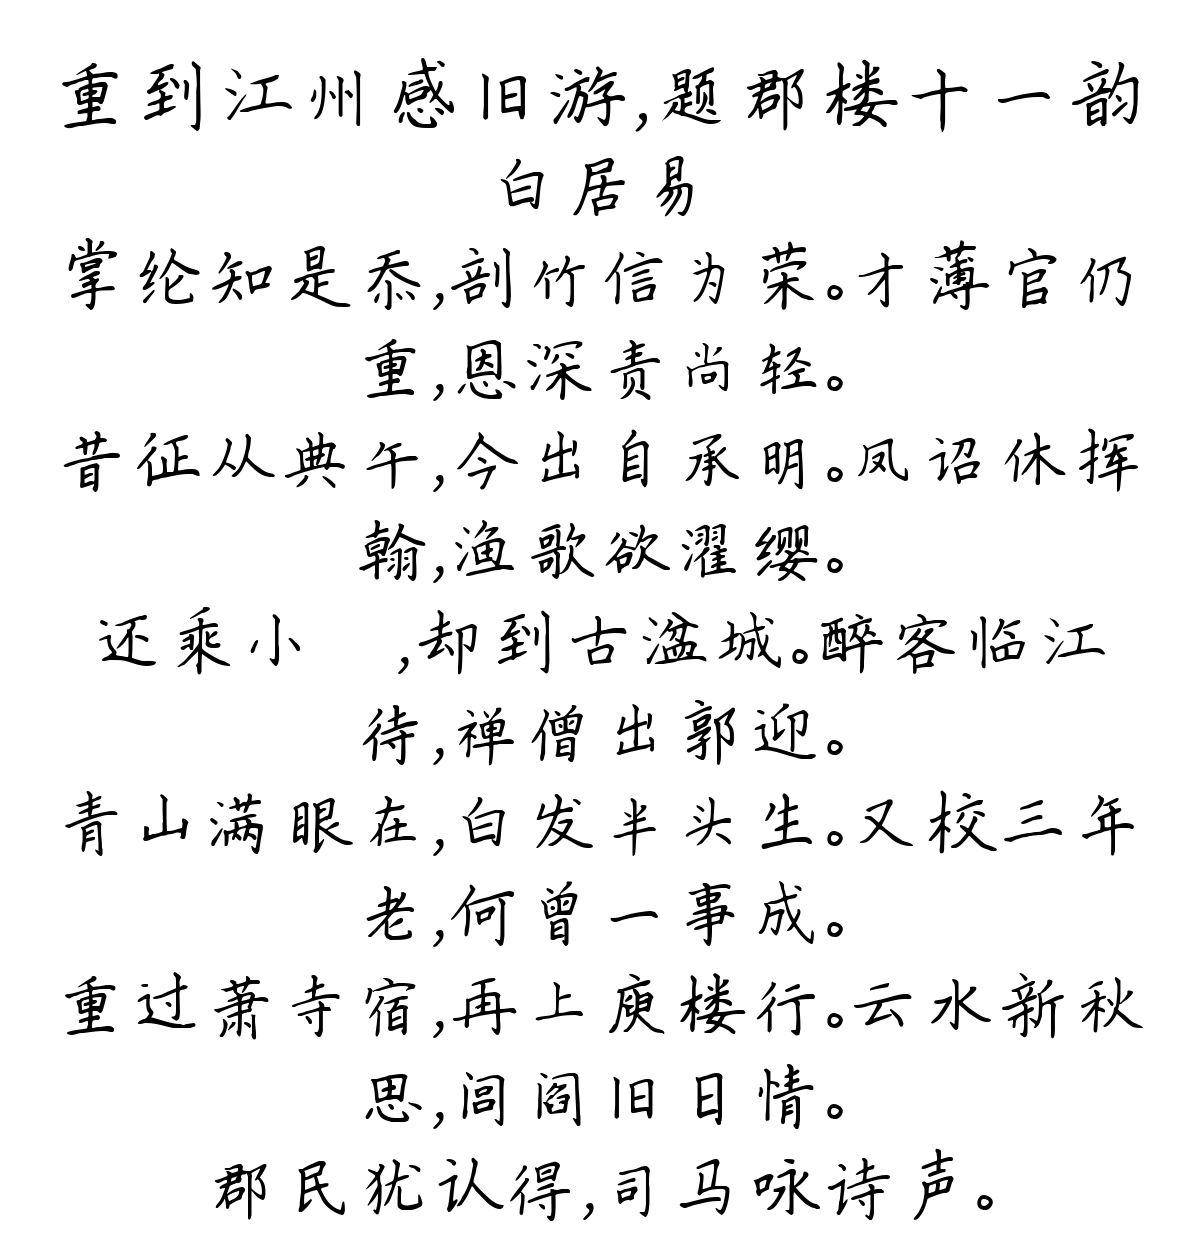 重到江州感旧游,题郡楼十一韵
白居易
掌纶知是忝,剖竹信为荣。才薄官仍
重,恩深责尚轻。
昔征从典午,今出自承明。凤诏休挥
翰,渔歌欲濯缨。
还乘小 ,却到古湓城。醉客临江
待,禅僧出郭迎。
青山满眼在,白发半头生。又校三年
老,何曾一事成。
重过萧寺宿,再上庾楼行。云水新秋
思,闾阎旧日情。
郡民犹认得,司马咏诗声。